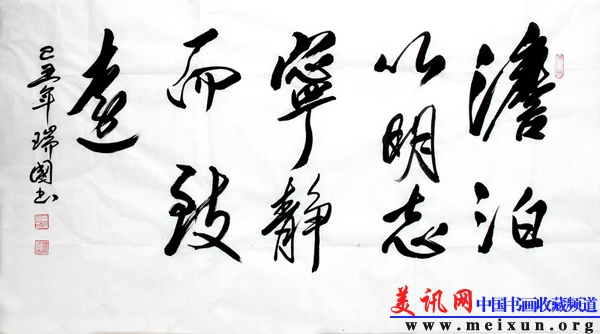 澹泊
以明志
寧静
而致
遠
己丑年瑞國书
美讯网 中国书画收藏频道
www.meixun.org